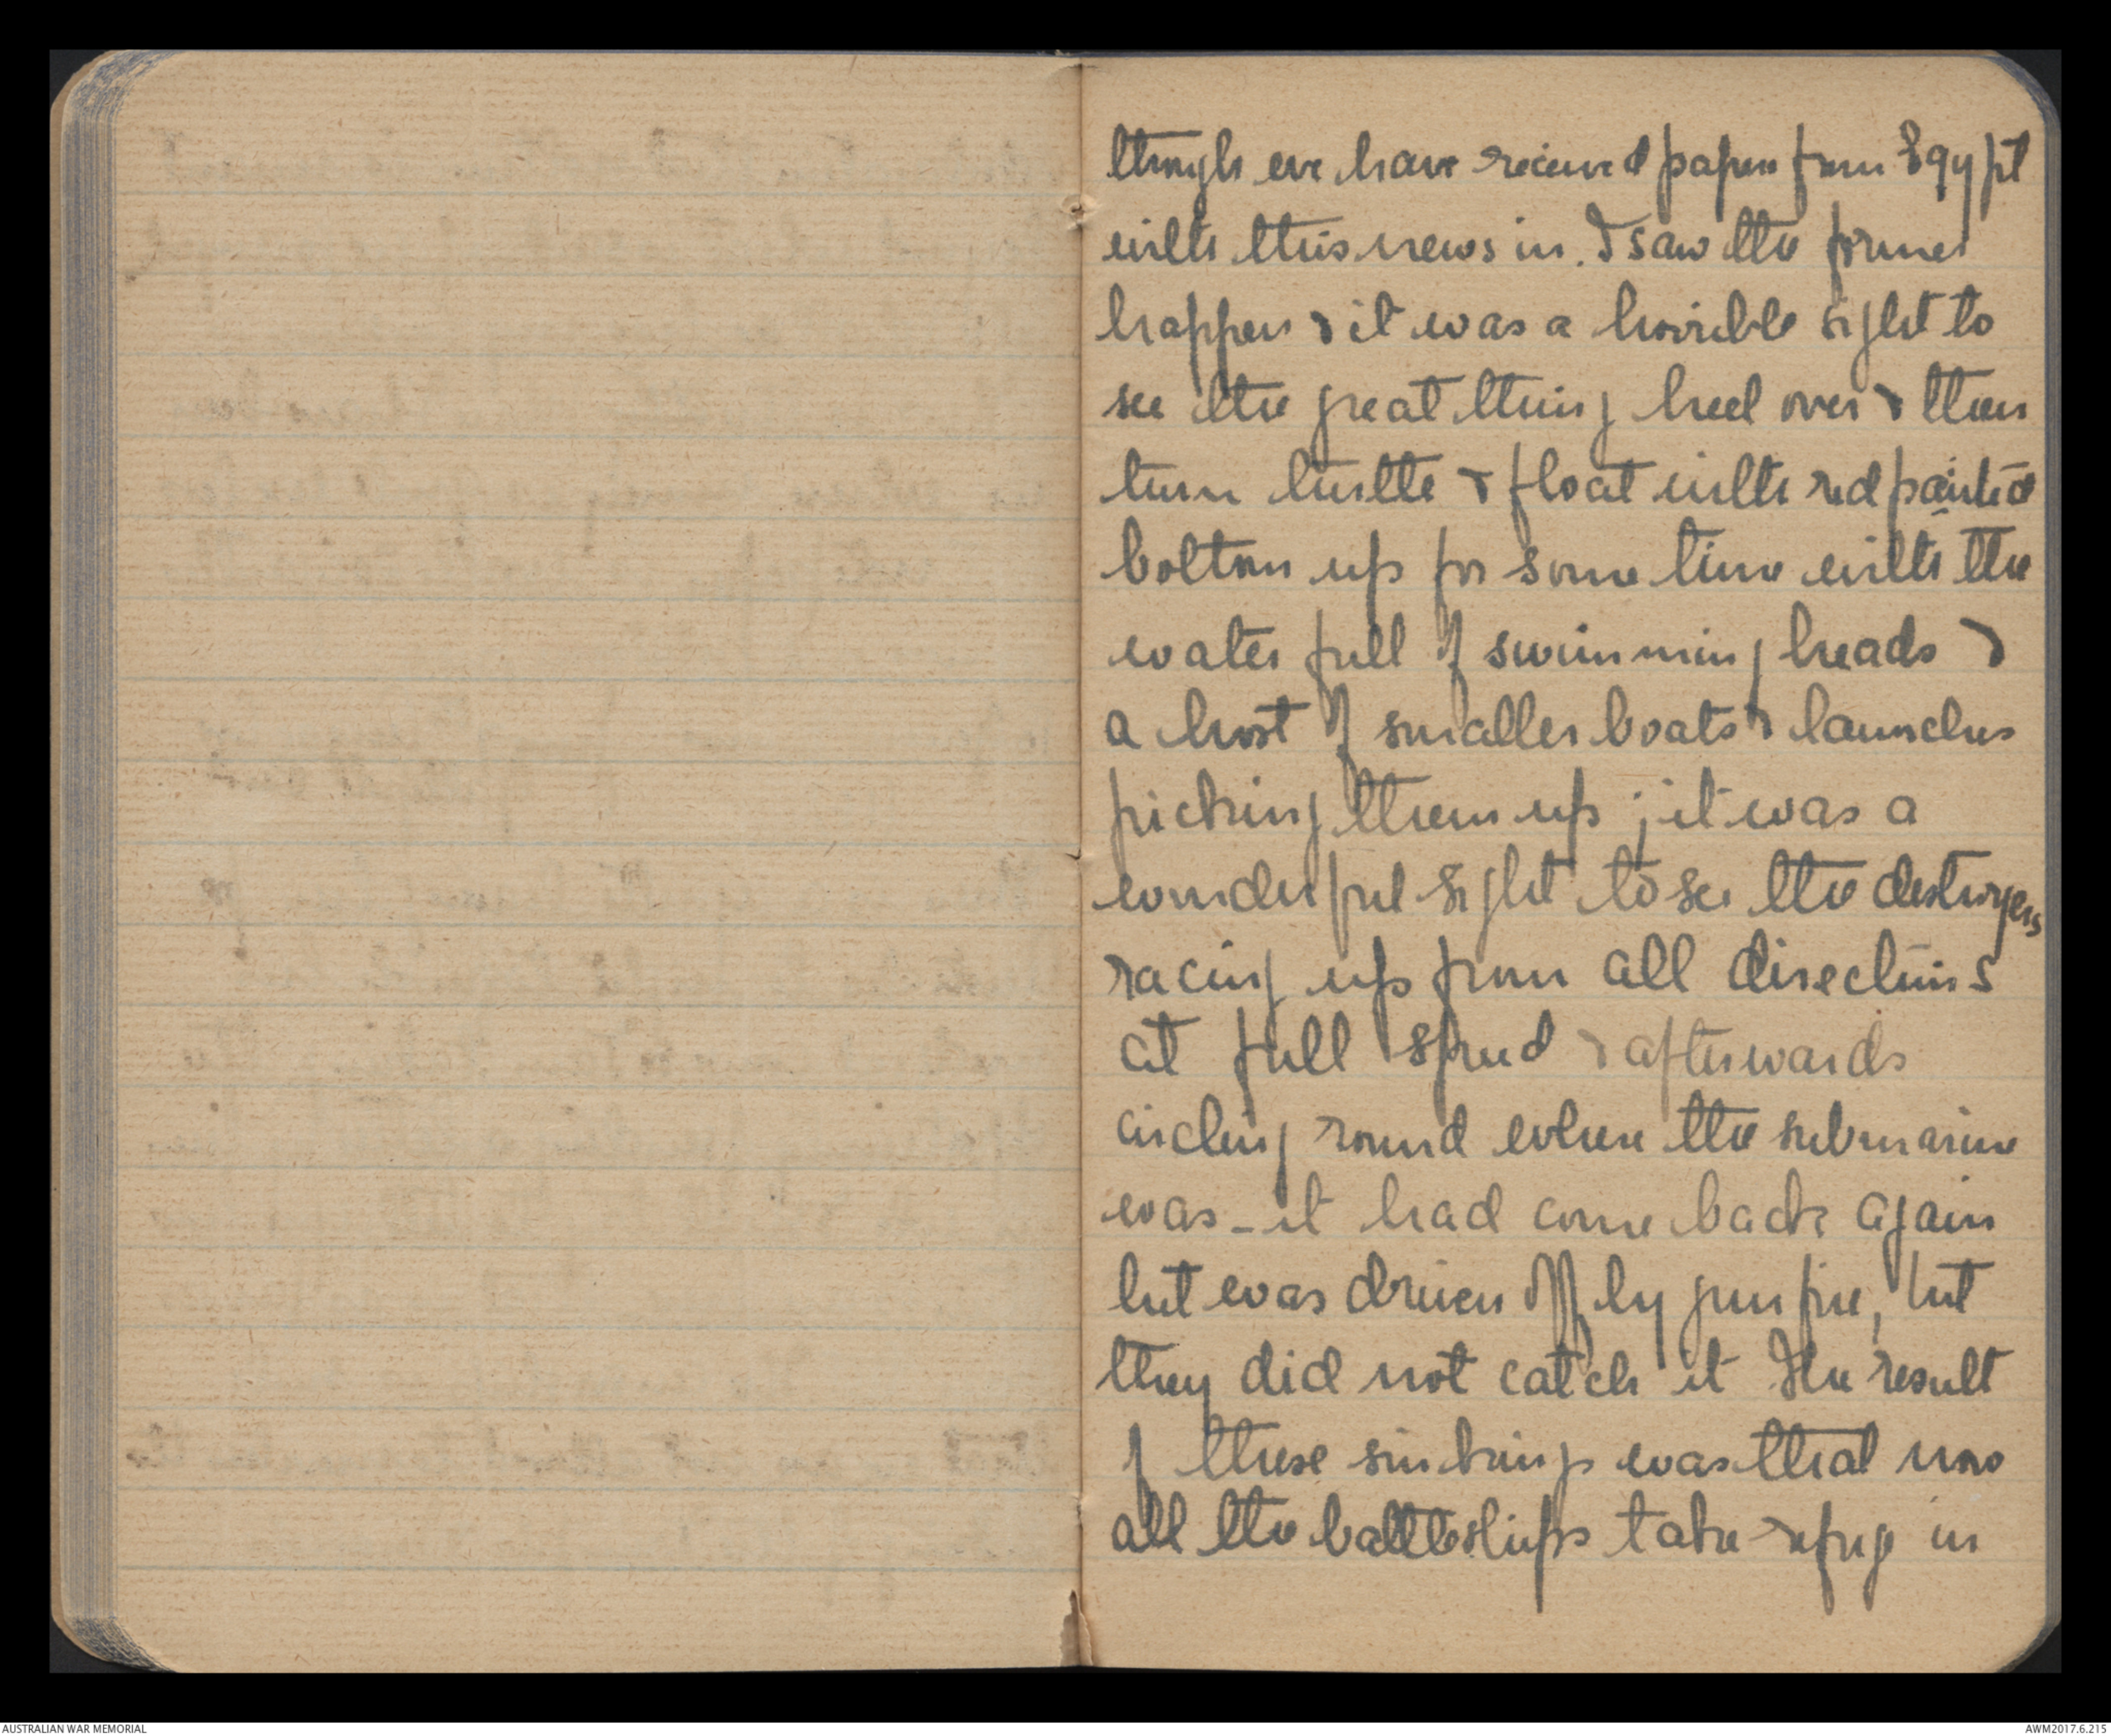 though we have received papers from Egypt
with this news in. I saw the former
happen & it was a horrible sight to
see the great thing heel over & then
turn turtle & float with red painted
bottom up for some time with the
water full of swimming heads &
a host of smaller boats & launches
picking them up; it was a
wonderful sight to see the destroyers
racing up from all directions
at full speed & afterwards
circling round where the submarine
was - it had come back again
but was driven off by gun fire, but
they did not catch it The result
of these sinkings was that now
all the battleships take refuge in
AUSTRALIAN WAR MEMORIAL
AWM2017.6.215